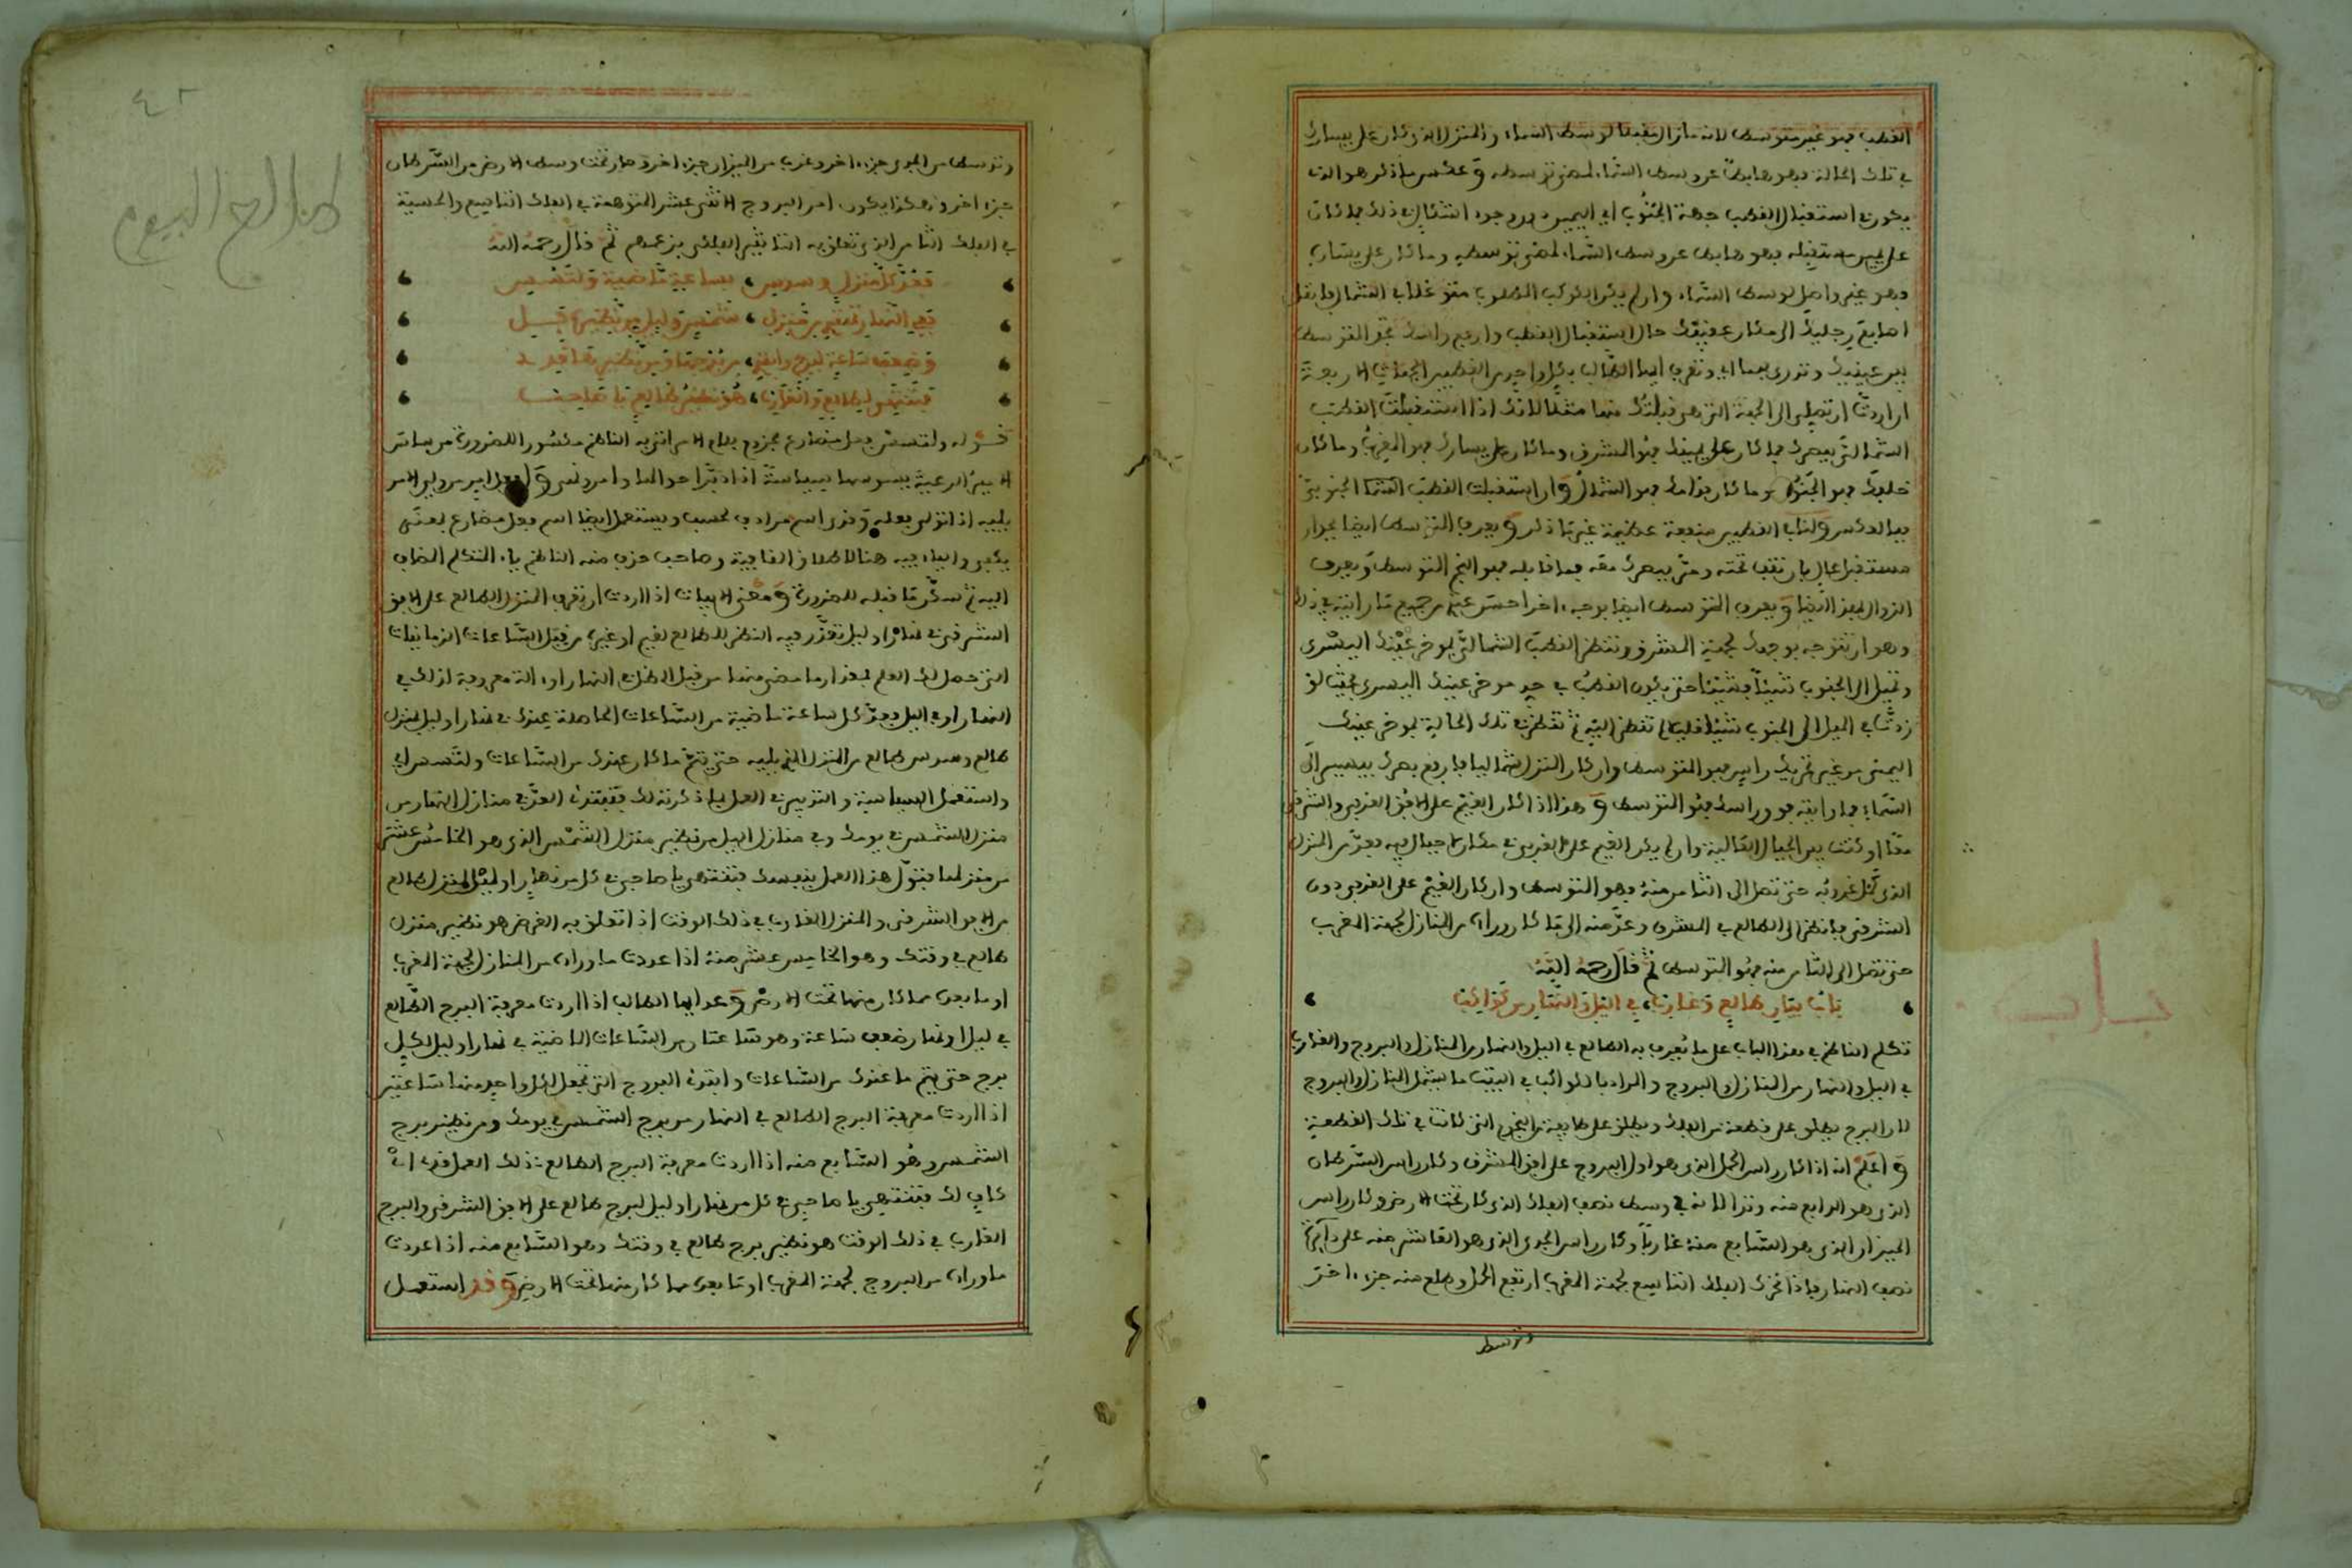 القطب فهو غير متوسط لانه مازال مقبلا لوسط السماء والمنزل الذي كان على يسارك
في تلك الحالة فهو هابط عن وسط السماء لمضي توسطه وعكس ما ذكر هو الذي
يكون في استقبال القطب جهة الجنوب
على يمين مستقبله فهو هابط عن وسط السماء لمضي توسطه وما كان على يساره
فهو غير واصل لوسط السماء وان لم يكن الكوكب المطلوب متوغلا في الشمال فانقل
اصابع رجليك الى مكان عقبك حال استقبال القطب وارفع راسك تجد المتوسط
بين عينيك وتدري بهما اي وتعرف ايها الطالب بكل واحد من القطبين الجهات الاربعة
ان اردت ان تصلي الى الجهة التي هي قبلتك منها مثلا لانك اذا استقبلت القطب
الشمالي ببصرك فما كان على يمينك فهو المشرق وما كان على يسارك فهو المغرب وما كان
خلفك فهو الجنوب وما كان قدامك فهو الشمال وان استقبلت القطب الجنوبي
فبالعكس وفي القطبين منفعة عظيمة غير ما ذكر ويعرف المتوسط ايضا بجدار
مستقبل عال بان تقف تحته ومتى ببصرك معه فما قابله فهو النجم المتوسط ويعرف
الزوال بهذا ايضا ويعرف المتوسط ايضا بوجه اخر احسن عندي من جميع ما رايته في ذلك
وهو ان تتوجه بوجهك لجهة المشرق وتنظر القطب الشمالي بموخر عينك اليسرى
وتميل الى الجنوب شيئا فشيئا حتى يكون القطب في حد موخر عينك اليسرى بحيث لو
زدت في الميل الى الجنوب شيئا قليلا لم تنظر اليه ثم تنظر في تلك الحالة بموخر عينك
اليمنى من غير تحريك راس فهو المتوسط وان كان المنزل شماليا فارفع بصرك بيسير الى
السماء فما رايته فوق راسك فهو المتوسط وهذا اذا كان الغيم على الافق الغربي والشرقي
معا او كنت بين الجبال العالية وان لم يكن الغيم على الغربي في مكان لا جبال فيه فعد من المنزل
الذي كمل غروبه حتى تصل الى الثامن منه فهو المتوسط وان كان الغيم على الغربي دون
الشرقي فانظر الى الطالع في المشرق وعد منه الى ما كان وراءه من المنازل لجهة المغرب
حتى تصل الى الثامن منه فهو المتوسط ثم قال رحمه الله
باب بيان طالع وغارب في الليل والنهار من كواكب
تكلم الناظم في هذا الباب على ما يعرف به الطالع في الليل والنهار من المنازل والبروج والغارب
في الليل والنهار من المنازل والبروج والمراد بالكواكب في البيت ما يشمل المنازل والبروج
لان البرج يطلق على قطعة من الفلك ويطلق على طايفة من النجوم التي كانت في تلك القطعة
واعلم انه اذا كان راس الحمل الذي هو اول البروج على افق المشرق وكان راس السرطان
الذي هو الرابع منه وتدا لانه في وسط نصف الفلك الذي كان تحت الارض وكان راس
الميزان الذي هو السابع منه غاربا وكان راس الجدي الذي هو العاشر منه على دائرة
نصف النهار فاذا تحرك الفلك التاسع لجهة المغرب ارتفع الحمل وطلع منه جزء اخر
وتوسط
وتوسط من الجدي جزء اخر وغرب من الميزان جزء اخر وصار تحت وسط الارض من السرطان
جزء اخر وهكذا يكون امر البروج الاثني عشر المتوهمة في الفلك التاسع والحسية
في الفلك الثامن الذي تعلق به التاثير الفلكي بزعمهم ثم قال رحمه الله
فعد كل منزل وسدس بساعة ماضية ولتسس
ففي النهار تبتدي بمنزل شمس وليل بنظير قيل
ونصف ساعة لبرج وابتدي من برجها ومن نظير ما قد
فتنتهي لطالع والغارب هو نظير طالع يا صاحب
قوله ولتسس فعل مضارع مجزوم بلام الامر اتى به الناظم مكسورا للضرورة من ساس
الامير الرعية يسوسها سياسة اذا دبر احوالها
يليه اذا تولى فعله وقد اسم مرادف لحسب ويستعمل ايضا اسم فعل مضارع بمعنى
يكفي والياء فيه هنا لاطلاق القافية وصاحب حذف منه الناظم ياء المتكلم المضاف
اليه ثم سكن ما قبله للضرورة ومعنى الابيات اذا اردت ان تعرف المنزل الطالع على الافق
الشرقي في نهار او ليل تعذر فيه النظر للطالع لغيم او غيره من قبل الساعات الزمانيات
التي حصل لك العلم بمقدار ما مضى منها من قبل الظل في النهار او الة معروفة لذلك في
النهار او في الليل فعد كل ساعة ماضية من الساعات الحاصلة عندك في نهار او ليل لمنزل
طالع وسدس طالع من المنزل الذي يليه حتى يتم ما كان عندك من الساعات ولتسس اي
واستعمل السياسة والتدبير في العمل بما ذكرته لك فتبتدئ العد في منازل النهار من
منزل الشمس في يومك وفي منازل الليل من نظير منزل الشمس الذي هو الخامس عشر
من منزلها فتول هذا العمل بنفسك فتنتهي يا صاحبي في كل من نهار او ليل لمنزل طالع
من الافق الشرقي والمنزل الغارب في ذلك الوقت اذا تعلق به الغرض هو نظير منزل
طالع في وقتك وهو الخامس عشر منه اذا عددت ما وراءه من المنازل لجهة المغرب
او ما بعده مما كان منها تحت الارض وعد ايها الطالب اذا اردت معرفة البرج الطالع
في ليل او نهار نصف ساعة وهو ساعتان من الساعات الماضية في نهار او ليل لكل
برج حتى يتم ما عندك من الساعات وابتدئ البروج التي تجعل لكل واحد منها ساعتين
اذا اردت معرفة البرج الطالع في النهار من برج الشمس في يومك ومن نظير برج
الشمس وهو السابع منه اذا اردت معرفة البرج الطالع
كاف لك فتنتهي يا صاحبي في كل من نهار او ليل لبرج طالع على الافق الشرقي والبرج
الغارب في ذلك الوقت هو نظير برج طالع في وقتك وهو السابع منه اذا عددت
ما وراءه من البروج لجهة المغرب او ما بعده مما كان منها تحت الارض وقد استعمل